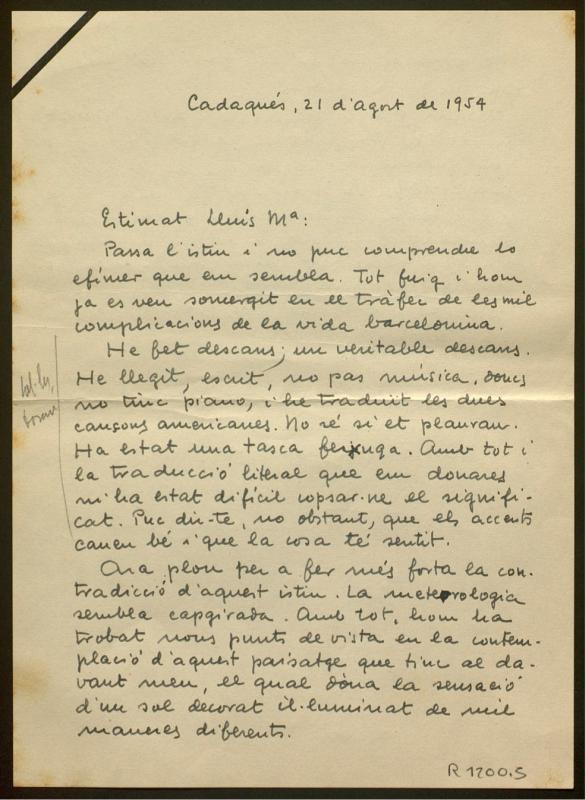 Cadaqués, 21 d'agost de 1954
Estimat Lluís Mª:
Passa l'istiu i no puc comprendre lo
efímer que em sembla. Tot fuig i hom
ja es veu somergit en el tràfec de les mil
complicacions de la vida barcelonina.
He fet descans; un veritable descans.
He llegit, escrit, no pas música, doncs
no tinc piano, i he traduït les dues
cançons americanes. No sé si et plauran.
Ha estat una tasca feixuga. Amb tot i
la traducció literal que em donares
m'ha estat difícil copsar-ne el signifi-
cat. Puc dir-te, no obstant, que els accents
cauen bé i que la cosa té sentit.
Ara plou per a fer més forta la con-
tradicció d'aquest istiu. La meteorologia
sembla capgirada. Amb tot, hom ha
trobat nous punts de vista en la contem-
plació d'aquest paisatge que tinc al da-
vant meu, el qual dòna la sensació
d'un sol decorat il·luminat de mil
maneres diferents.
R 1200.5